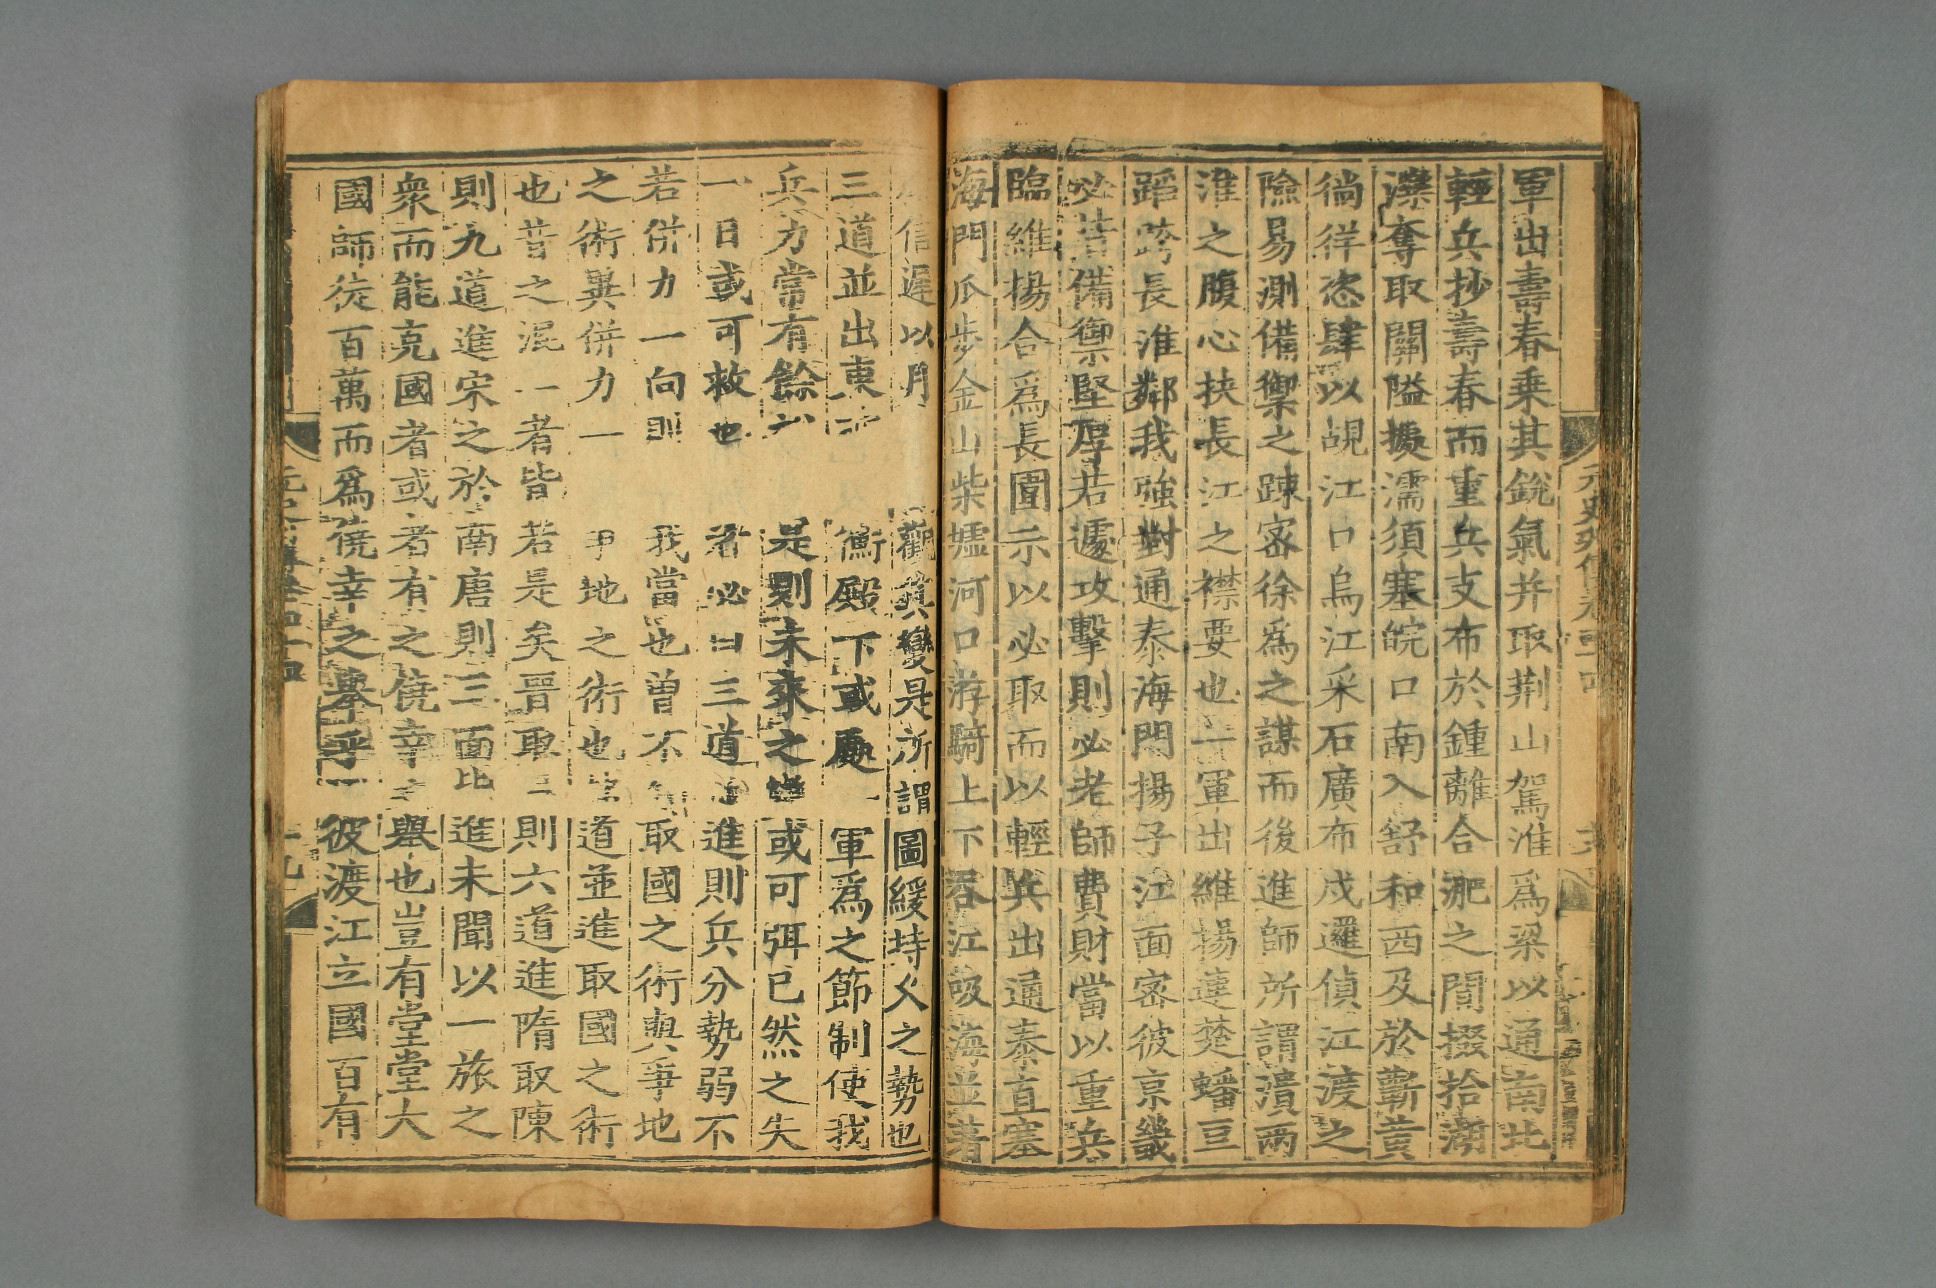 軍出壽春乗其銳氣并取荆山駕淮為梁以通南北
輕兵抄壽春而重兵支布於鍾離合淝之間掇拾湖
濼奪取關隘據濡須塞皖口南入舒和西及於蘄黄
徜徉恣肆以覘江口烏江采石廣布戍邏偵江渡之
險易測備禦之踈宻徐為之謀而後進師所謂潰兩
淮之腹心抉長江之襟要也一軍出維揚連楚蟠亘
蹈跨長淮鄰我強對通泰海門揚子江面宻彼京畿
必皆備禦堅厚若遽攻擊則必老師費財當以重兵
臨維揚合為長圍示以必取而以輕兵出通泰直塞
海門瓜步金山柴墟河口游騎上下吞江吸海並著
信遲以月觀其變是所謂圖緩持久之勢也
三道並出東衝殿下或處軍為之節制使我
兵力常有餘是則未來之變或可弭已然之失
一日或可救也者必曰三道進則兵分勢弱不
若併力一向則我當也曾不取國之術與爭地
之術異併力一爭地之術也道並進取國之術
也昔之混一者皆若是矣晋取則六道進隋取陳
則九道進宋之於南唐則三面進未聞以一旅之
衆而能克國者或者有之僥幸舉也豈有堂堂大
國師徒百萬而為僥幸之舉乎彼渡江立國百有